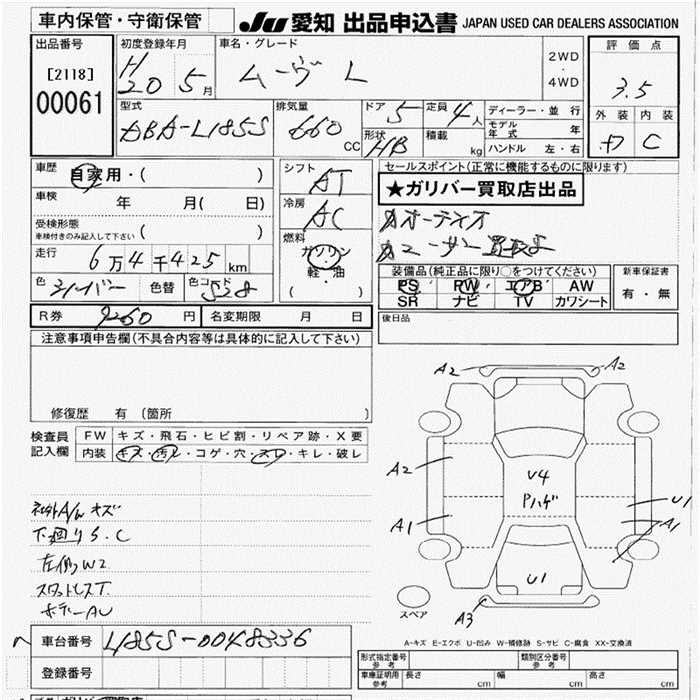 車内保管・守衛保管
JU 愛知 出品申込書 JAPAN USED CAR DEALERS ASSOCIATION
出品番号
[2118]
00061
初度登録年月
H20 5月
車名・グレード
ムーヴ L
2WD
・
4WD
評価点
3.5
外装 内装
C
型式
DBA-L185S
排気量
660 CC
ドア 5
形状 HB
定員 4人
積載 kg
ディーラー・並行
モデル年式 年
ハンドル 左・右
車歴
自家用・( )
車検
年 月( 日)
受検形態
車検付きのみ記入して下さい ( )
走行
6万4千425km
色
シルバー
色替
色コード S28
シフト
AT
冷房
AC
燃料
ガソリン
軽・油
( )
セールスポイント(正常に機能するものに限ります)
★ガリバー買取店出品
オーディオ
ユーザー買取
装備品(純正品に限り○をつけてください)
PS PW エアB AW
SR ナビ TV カワシート
新車保証書
有・無
R券 9260 円
名変期限 月 日
後日品
注意事項申告欄(不具合内容等は具体的に記入して下さい)
修復歴 有(箇所 )
検査員記入欄
FW キズ・飛石・ヒビ割・リペア跡・X要
内装 キズ・汚レ・コゲ・穴・スレ・キレ・破レ
社外A/W キズ
下廻りS.C
左側W2
スタットレスT.
ボディーAU
A2
A2
A2
A1
U4
Pハゲ
U1
U1
A1
A3
スペア
A-キズ E-エクボ U-凹み W-補修跡 S-サビ C-腐食 XX-交換済
車台番号 L185S-0048336
登録番号
形式指定番号 参考
類別区分番号 参考
車庫証明用 参考
長さ cm
幅 cm
高さ cm